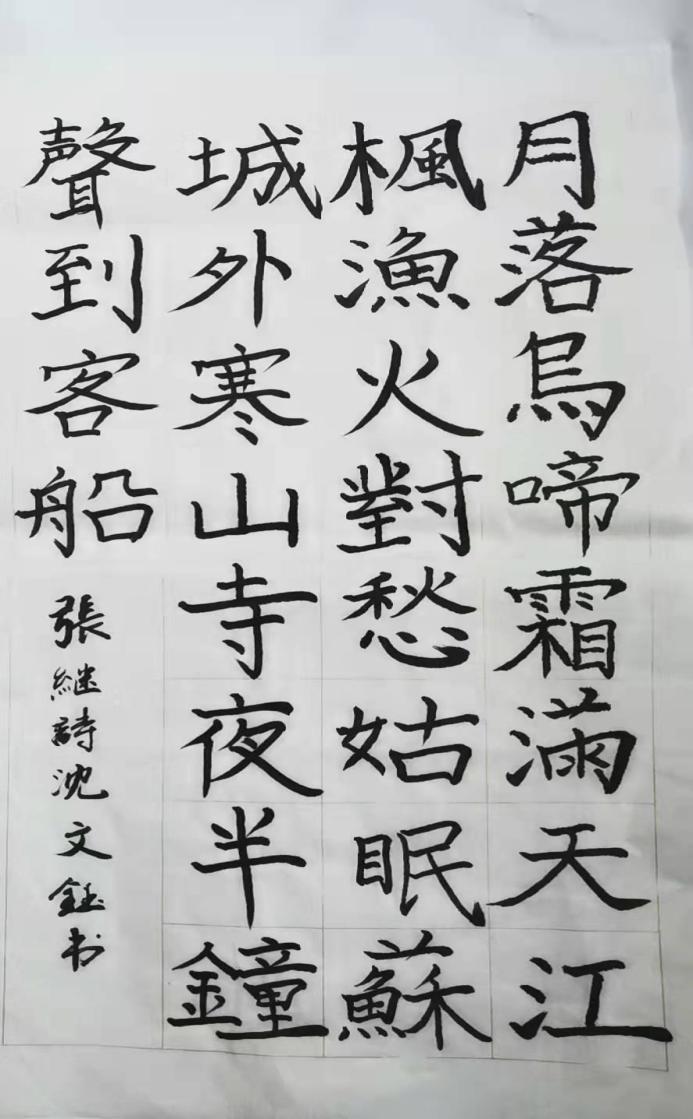 月落烏啼霜滿天江
楓漁火對愁姑眠蘇
城外寒山寺夜半鐘
聲到客船
張継詩沈文鈺书